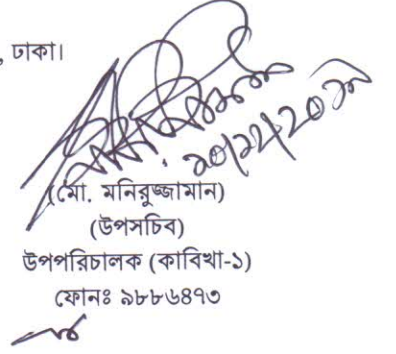 , ঢাকা।
(মো. মনিরুজ্জামান)
(উপসচিব)
উপপরিচালক (কাবিখা-১)
ফোনঃ ৯৮৮৬৪৭৩